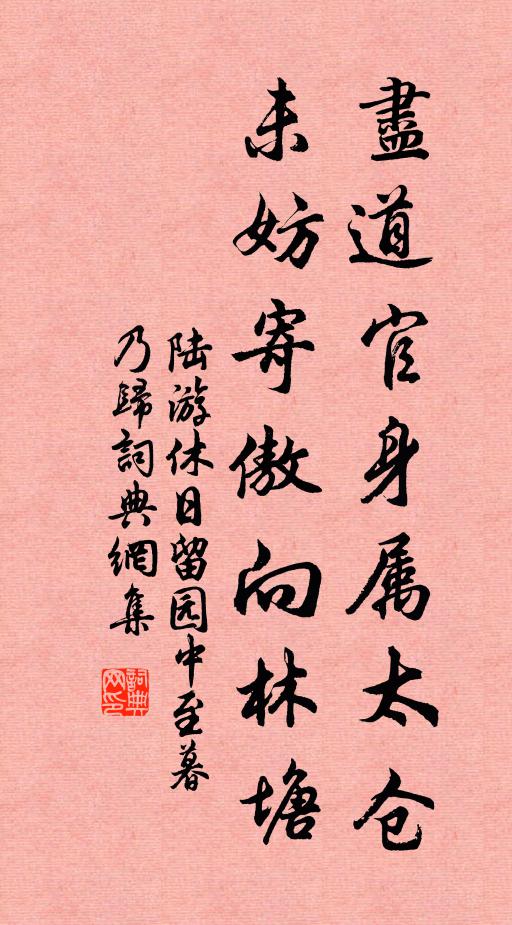 盡道官身属太仓
未妨寄傲向林塘
陆游休日留园中至暮
乃歸詞典網集
詞典网印